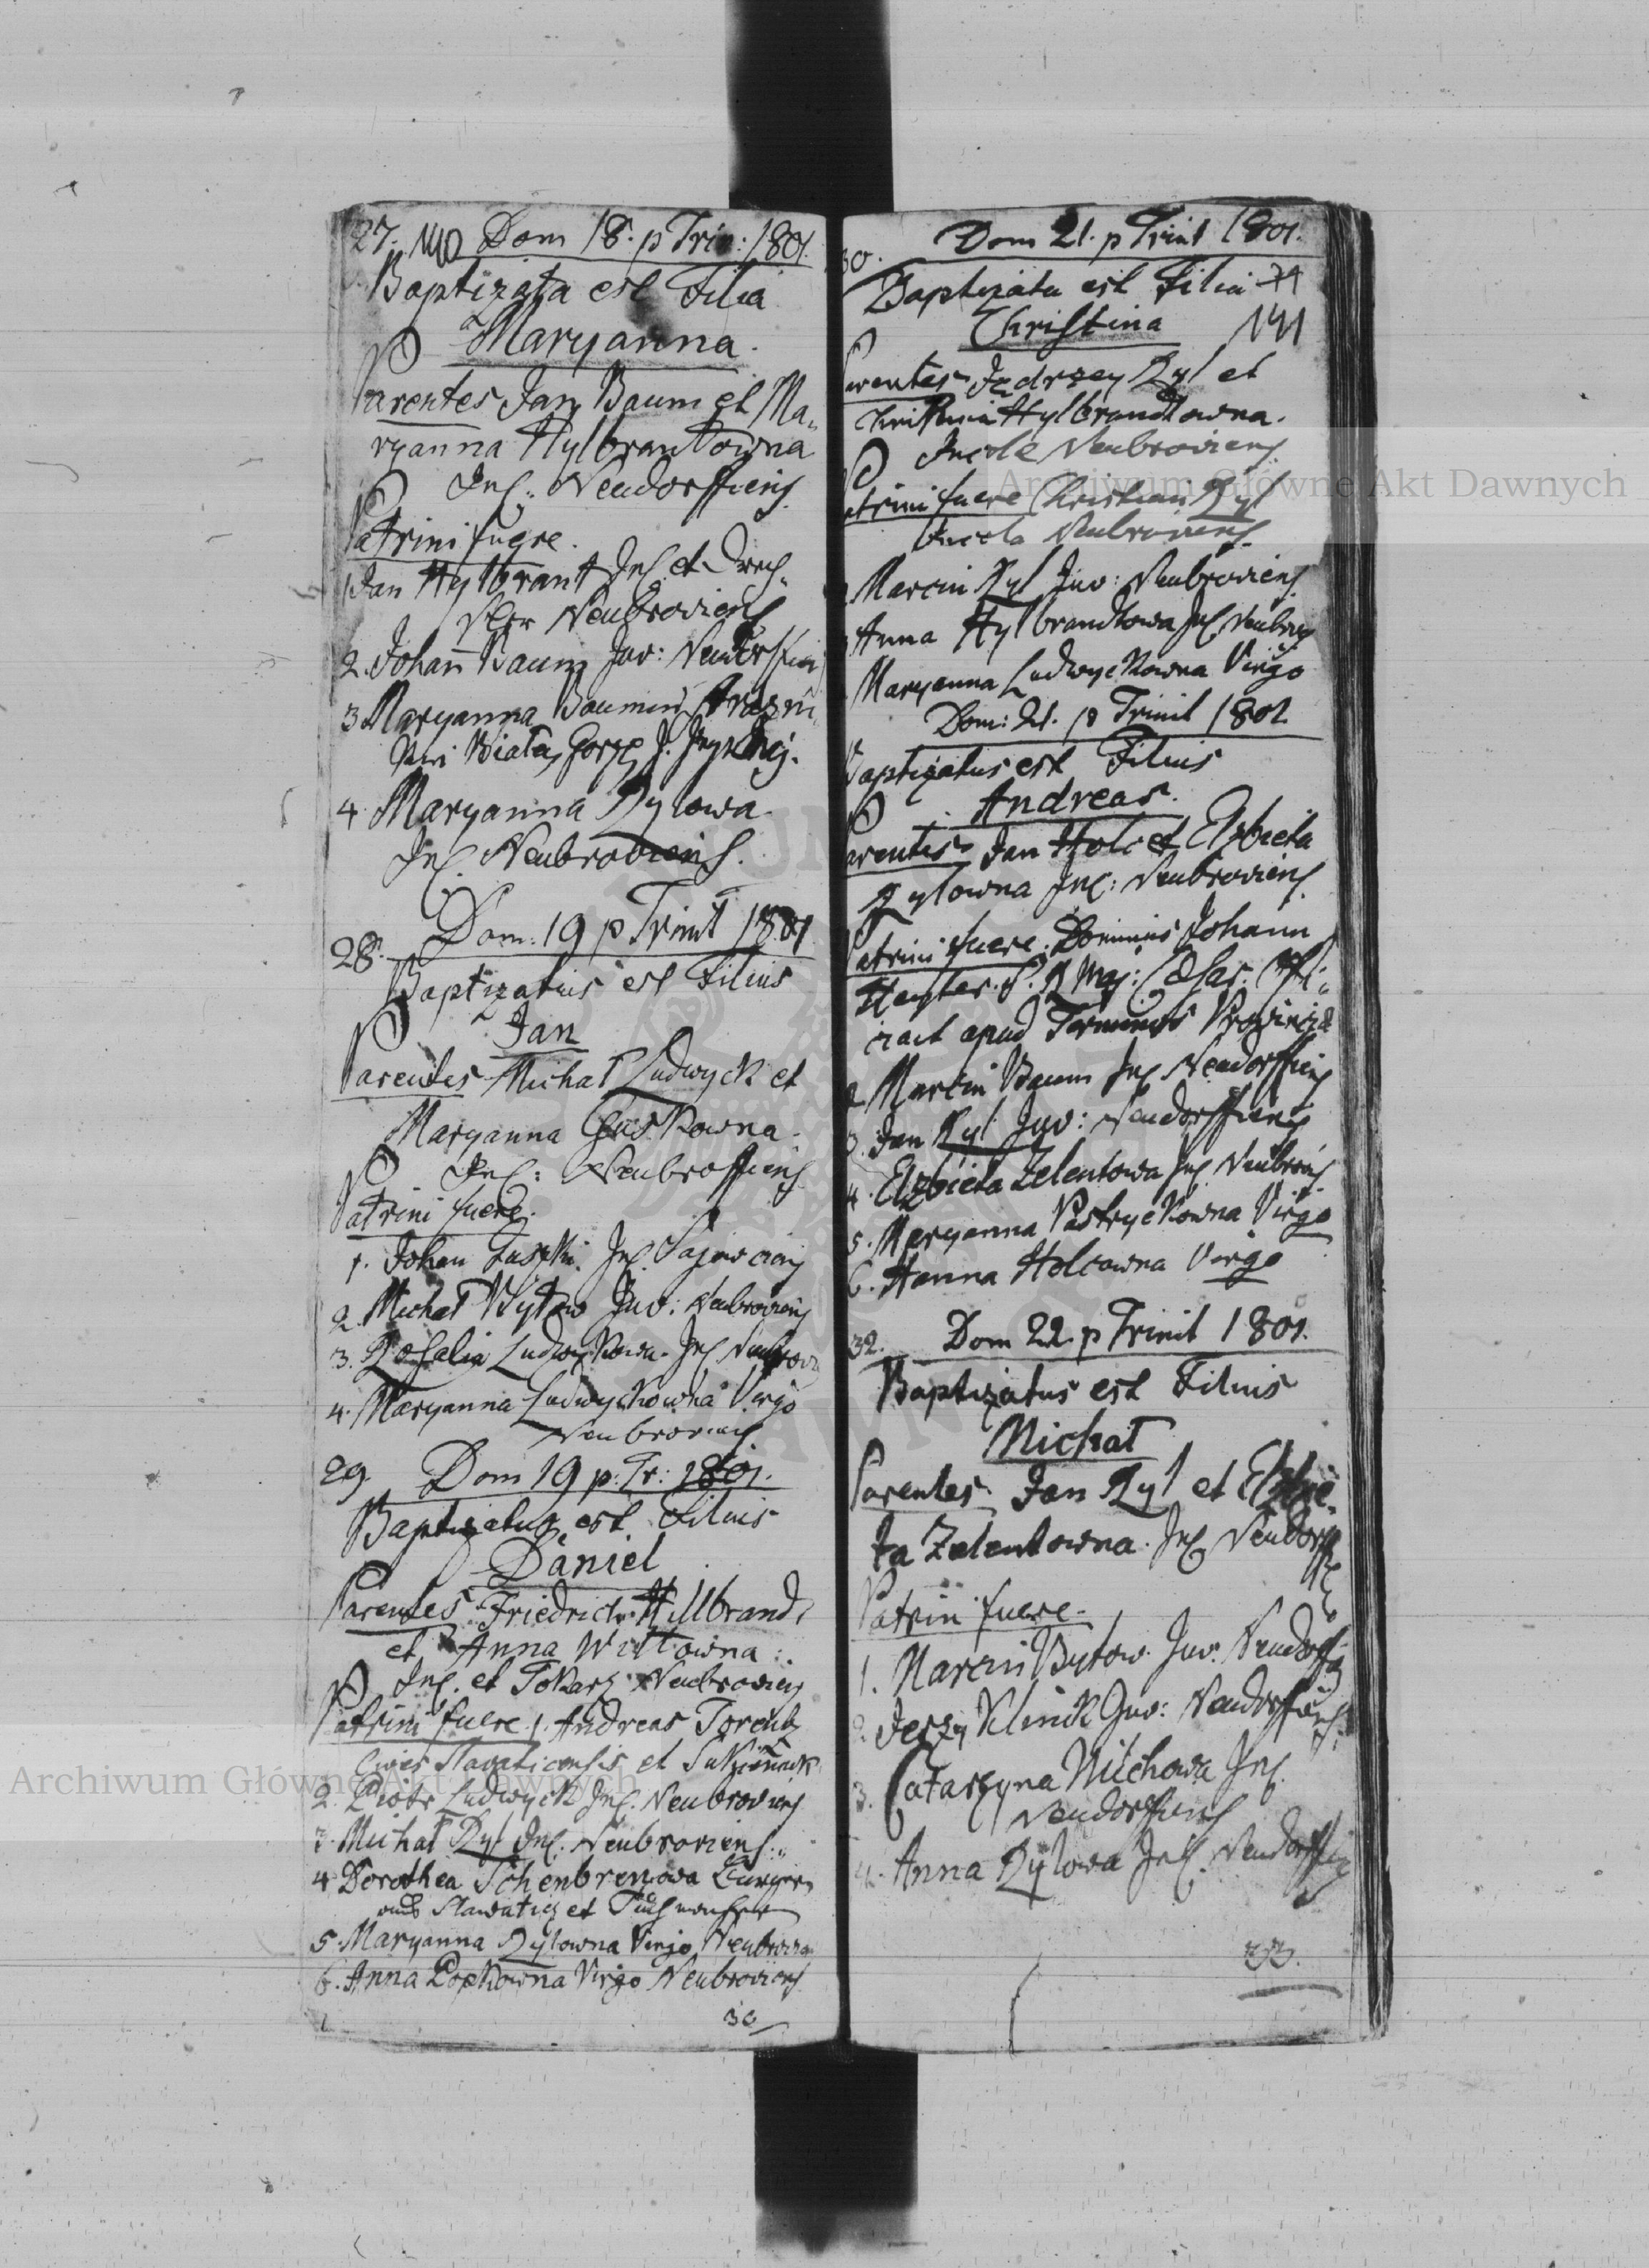 27. 140 Dom 18. p Trin: 1801.
Baptizata est Filia
Maryanna.
Parentes Jan Baum et Ma„
ryanna Hylbrantowna
Inc: Neudorffiens.
Patrini fuere.
1. Jan Hylbrant Inc. et Drechs„
ler Neubroviens
2. Johan̄ Baum Juv: Neudorffien
3 Maryanna
4. Maryanna Rylowa.
Inc. Neubroviens.
28. Dom. 19 p Trinit 1801
Baptizatus est Filius
Jan
Parentes Michał Ludwyck et
Maryanna
Inc:
Patrini fuere.
1. Johan Inc.
2. Michał Bytow Juv: Neubroviens
3. Rosalia Ludwykowa. Inc Neubrov
4. Maryanna Ludwyckowna Virgo
Neubroviens.
29. Dom 19 p: Tr: 1801.
Baptizatus est Filius
Daniel
Parentes Friedrich Hillbrand
et Anna Witowna.
Inc. et Tokarz Neubroviens
Patrini fuere 1. Andreas
Civis Slavaticensis et
2. Piotr Ludwyck Inc. Neubroviens
3. Michał Ryl Inc. Neubroviens.„
4 Dorothea Schenbrenowa
et
5. Maryanna Rylowna Virgo Neubrovien
6. Anna Virgo Neubroviens
30
30. Dom 21. p Trinit 1801.
Baptizata est Filia 71
Christina 141
Parentes Jędrzey Ryl et
Christina Hylbrandtowna.
Incole Neubroviens.
Patrini fuere Christian Ryl
Incola Neubroviens.
Marcin Ryl Juv: Neubroviens
Anna Hylbrandtowa Inc. Neubrov
Maryanna Ludwyckowna Virgo
Dom: 21. p Trinit 1801.
Baptizatus est Filius
Andreas.
Parentes Jan Holc et Elzbieta
Rylowna Inc: Neubroviens.
Patrini fuere. Dominus Johann
apud Provinciæ
2 Marcin Baum Inc Neudorffiens
3. Jan Ryl Juv: Neudorffiens
4. Elzbieta Zelentowa Inc Neubrovins
5. Maryanna Pastryckowna Virgo
6. Hanna Holcowna Virgo
32. Dom 22. p Trinit 1801.
Baptizatus est Filius
Michał
Parentes Jan Ryl et Elzbie„
ta Zelentowna. Inc Neudorff
Patrini fuere.
1. Marcin Bytow. Juv. Neudorff
2. Jerzy Klinik Juv: Neudorffiens.
3. Catarzyna Inc.
Neudorffiens
4. Anna Rylowa Inc. Neudorffien
33.
Archiwum Główne Akt Dawnych
Archiwum Główne Akt Dawnych